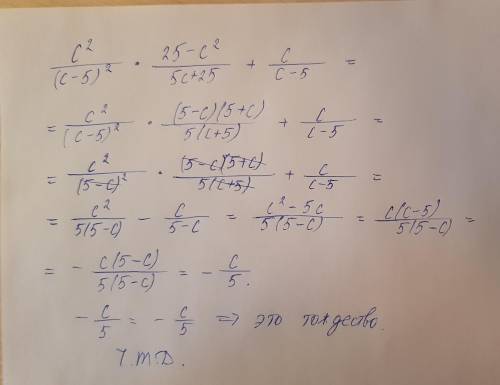 c²/(c-5)² · 25-c²/5c+25 + c/c-5 =
= c²/(c-5)² · (5-c)(5+c)/5(c+5) + c/c-5 =
= c²/(5-c)² · (5-c)(5+c)/5(c+5) + c/c-5 =
= c²/5(5-c) - c/5-c = c²-5c/5(5-c) = c(c-5)/5(5-c) =
= - c(5-c)/5(5-c) = - c/5.
- c/5 = - c/5 => это тождество.
Ч.Т.Д.